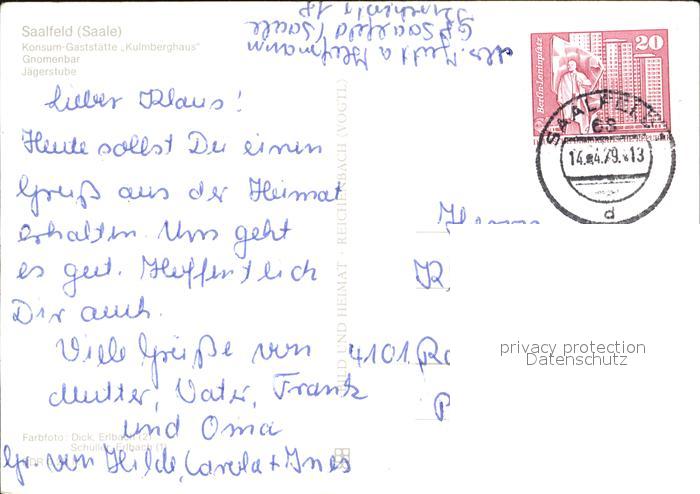 Saalfeld (Saale)
Konsum-Gaststätte „Kulmberghaus"
Gnomenbar
Jägerstube
Gr. Saalfeld/Saale
18
Berlin-Leninplatz
20
SAALFELD
68
14.-4.79.-13
d
Lieber Klaus!
Heute sollst Du einen
Gruß aus der Heimat
erhalten. Uns geht
es gut. Hoffentlich
Dir auch.
Viele Grüße von
Mutter, Vater, Frank
und Oma
Gr. von Hilde, Carola + Ines
BILD UND HEIMAT · REICHENBACH (VOGTL)
4101
privacy protection
Datenschutz
Farbfoto: Dick, Erlbach (2)
Schuller, Erlbach (1)